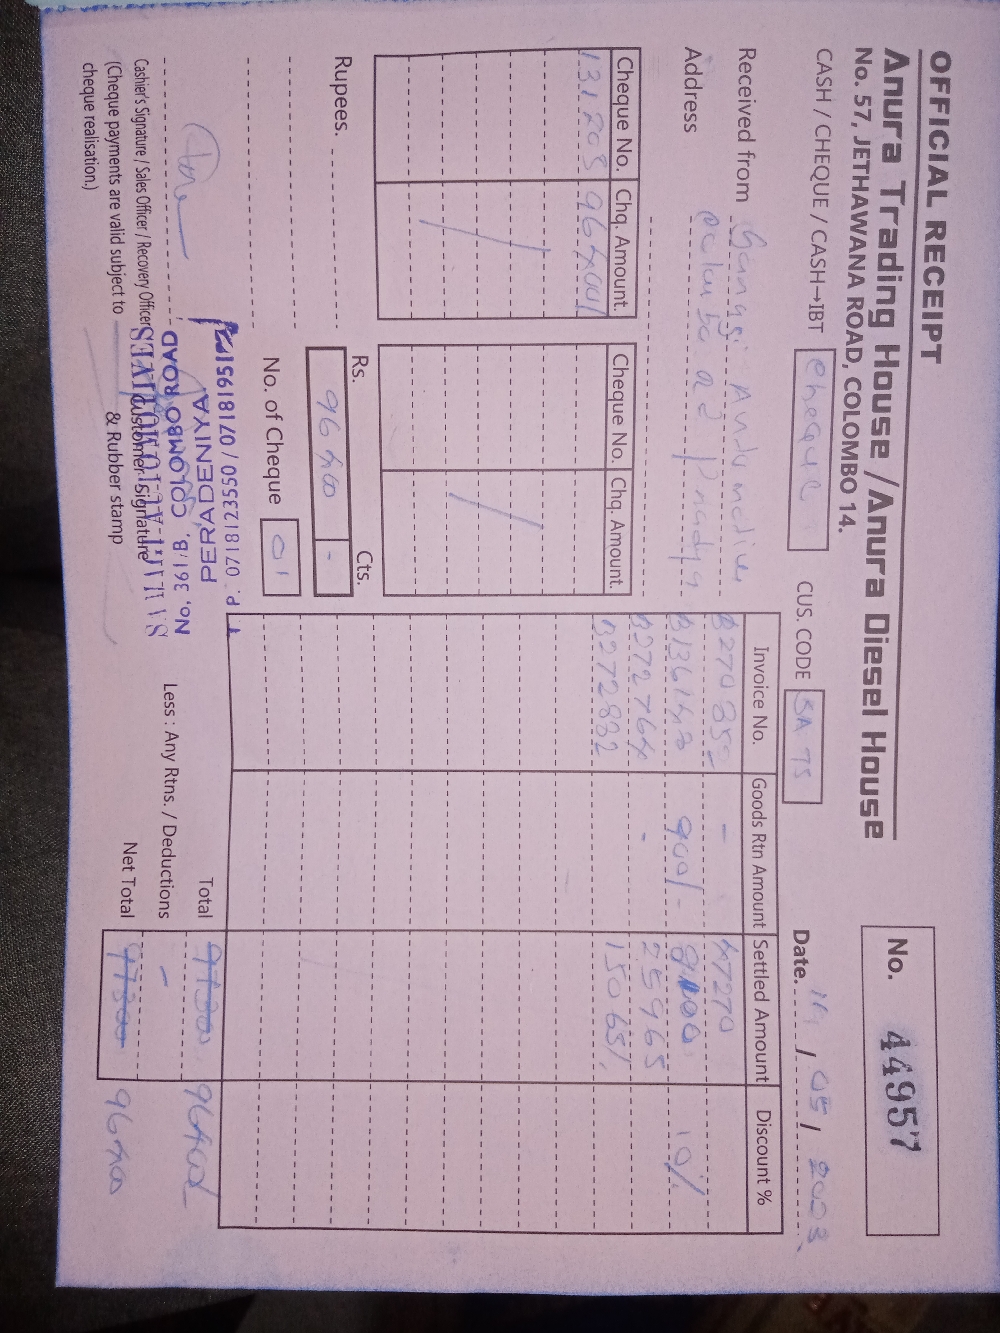 OFFICIAL RECEIPT
Anura Trading House / Anura Diesel House
No. 57, JETHAWANA ROAD, COLOMBO 14.
No. 44957
CASH / CHEQUE / CASH→IBT cheque
CUS. CODE SA 75
Date. 14 / 05 / 2023
Received from
Address
Cheque No. Chq. Amount. Cheque No. Chq. Amount.
131208 96400/
Rupees.
Rs. Cts.
96400 -
No. of Cheque 01
Invoice No. Goods Rtn Amount Settled Amount Discount %
B270352 - 47270
B136143 900/- 8100 10%
B272764 - 25965
B272832 15065/
Total 97300 96400/
Less : Any Rtns. / Deductions -
Net Total 97300 96400
No. 361/B, COLOMBO ROAD
PERADENIYA
0718123550 / 0718181951
Cashier's Signature / Sales Officer / Recovery Officer
Customer Signature
(Cheque payments are valid subject to & Rubber stamp
cheque realisation.)